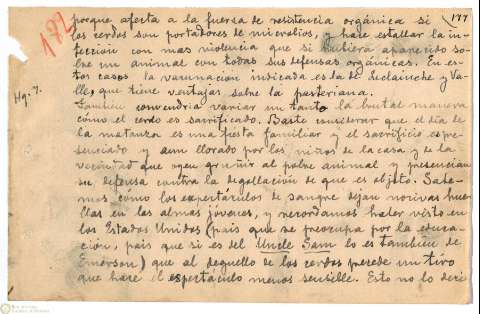 177
172
Hg. 7.
porque afecta a la fuersa de resistencia orgánica si
los cerdos son portadores de microbios, y hace estallar la in-
fección con mas violencia que si hubiera aparecido so-
bre un animal con todas sus defensas orgánicas. En es-
tos casos la vacunación indicada es la de Leclainche y Va-
lle, que tiene ventajas sobre la pasteriana.
Tambien convendria variar un tanto la brutal manera
cómo el cerdo es sacrificado. Baste considerar que el dia de
la matanza es una fiesta familiar y el sacrificio es pre-
senciado y aun llorado por los niños de la casa y de la
vecindad que oyen gruñir al pobre animal y presencian
su defensa contra la degollación de que es objeto. Sabe-
mos como los espectáculos de sangre dejan nocivas hue-
llas en las almas jóvenes, y recordamos haber visto en
los Estados Unidos (pais que se preocupa por la educa-
ción, pais que si es del Uncle Sam lo es tambien de
Emerson) que al deguello de los cerdos precede un tiro
que hace el espectáculo menos sensible. Esto no lo deci